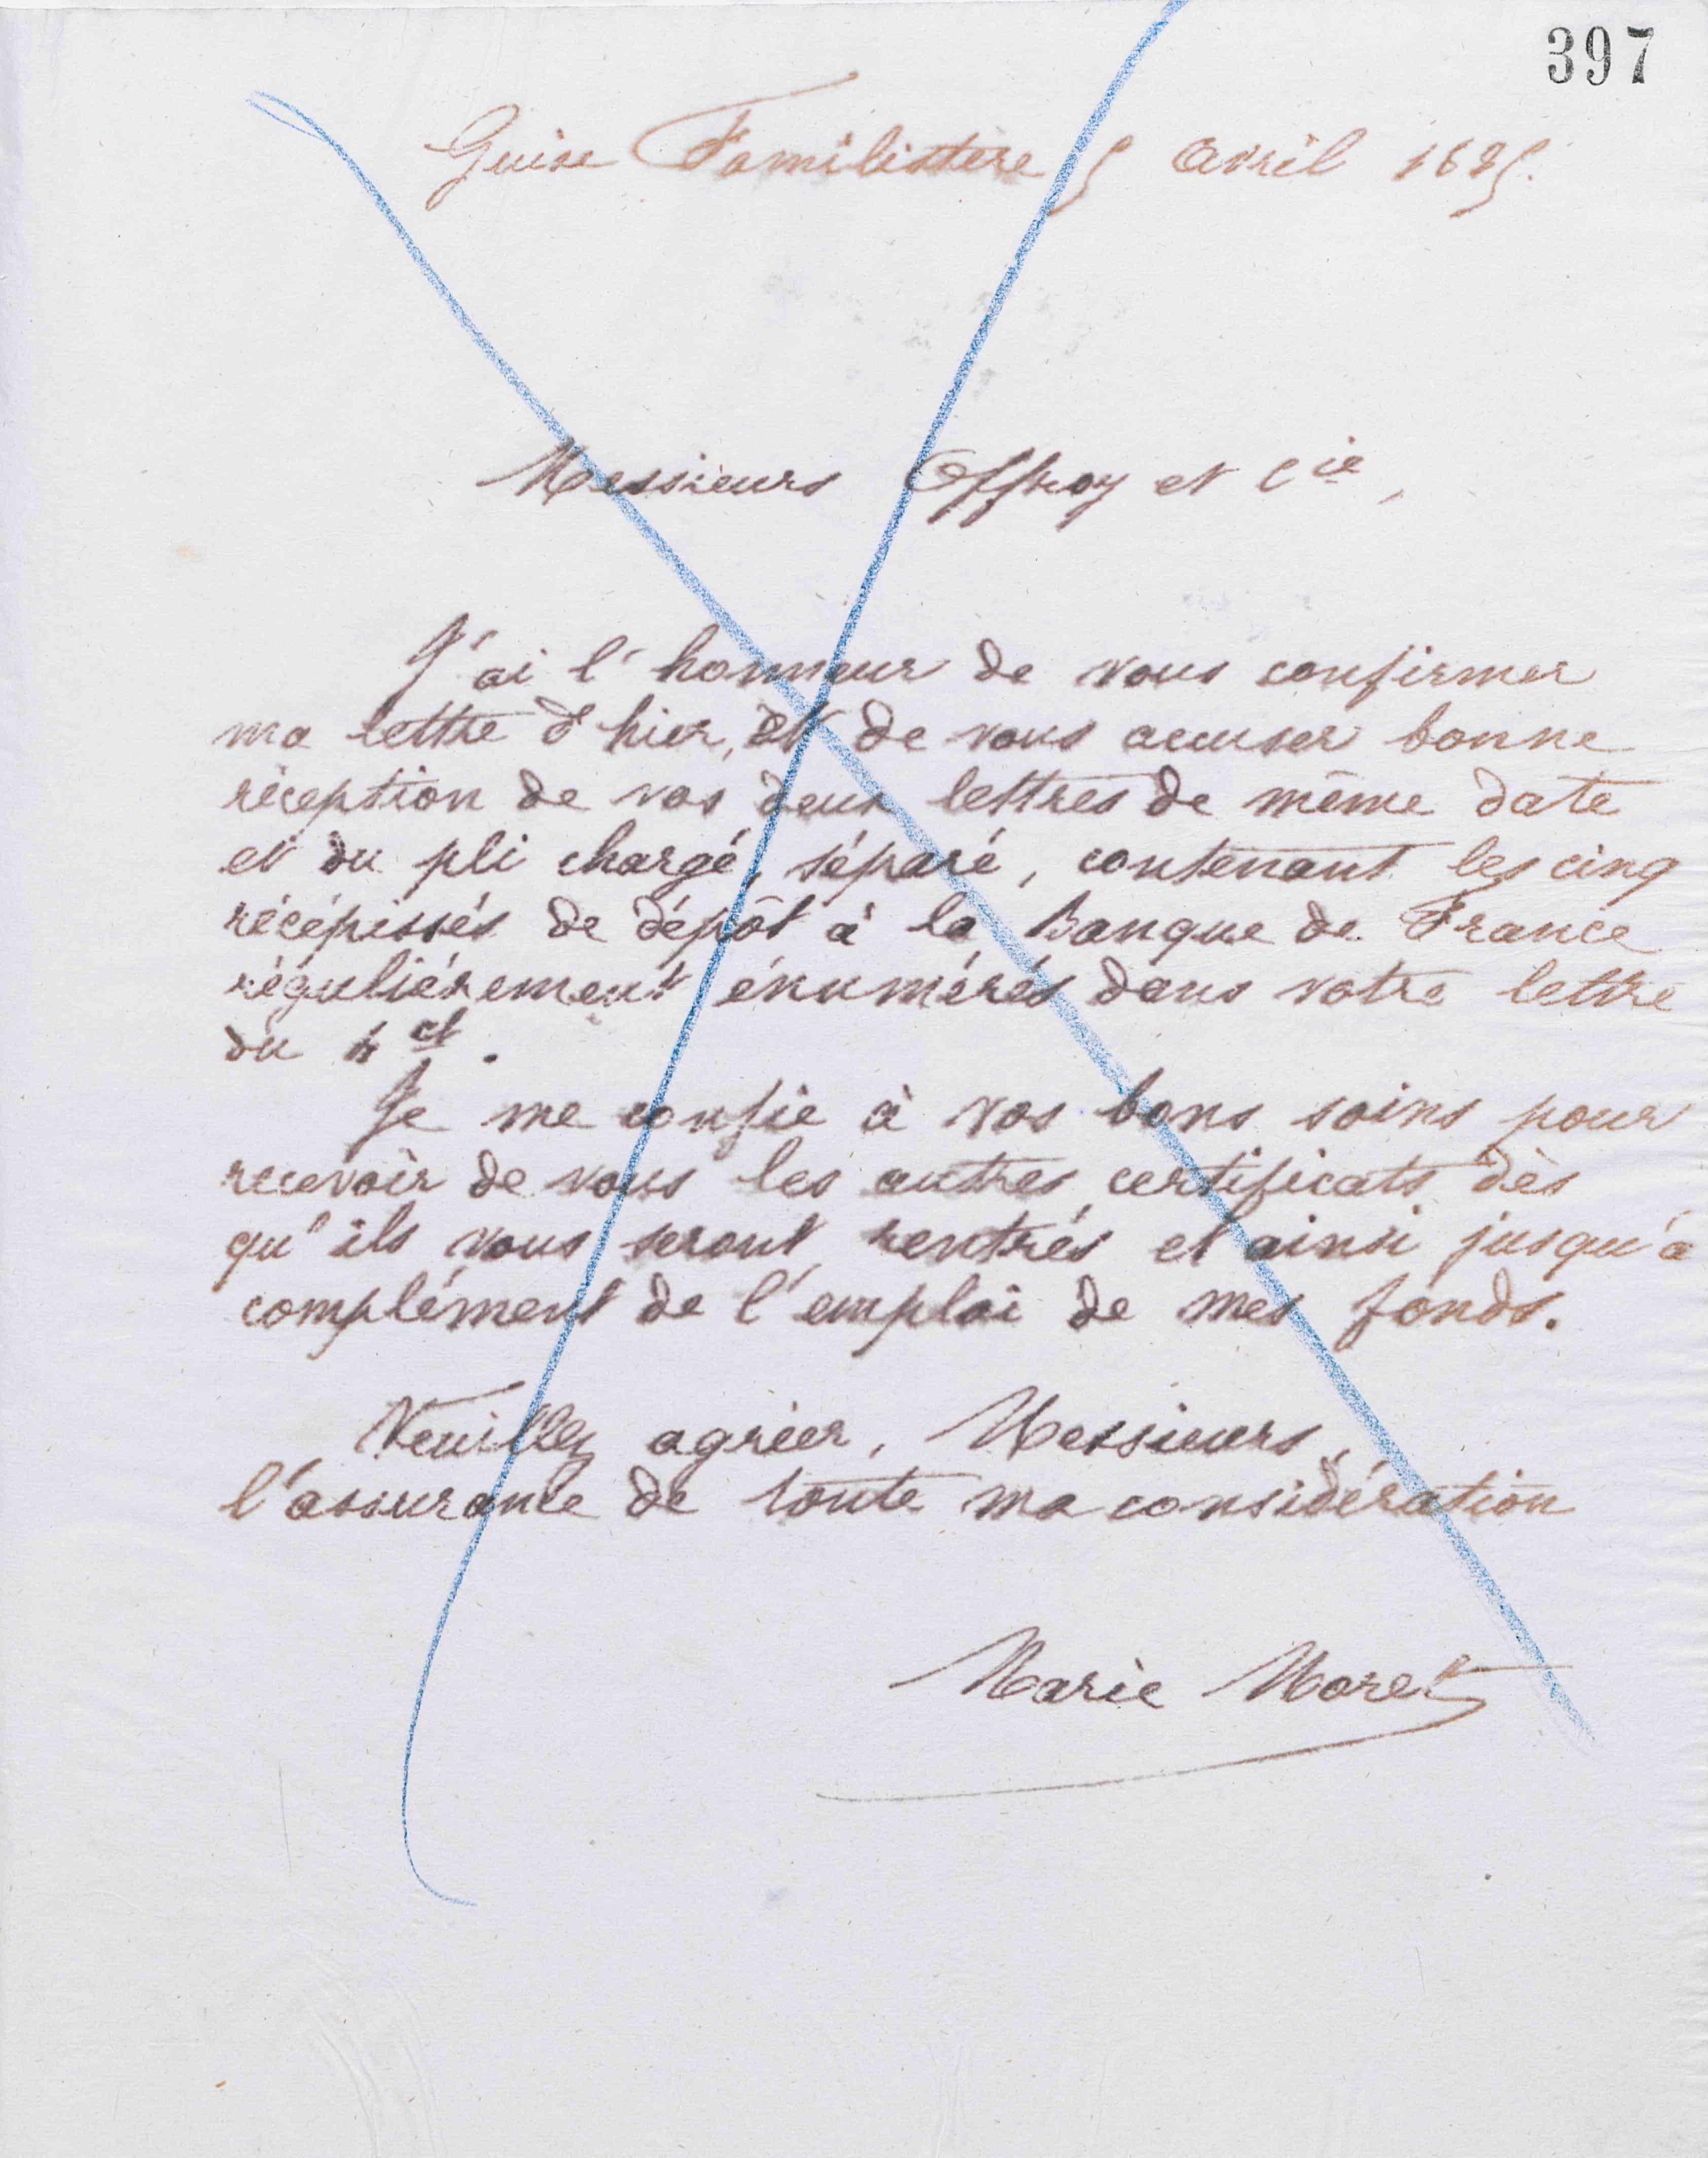 397
Guise Familistère 5 avril 1895.
Messieurs Offroy et Cie,
J'ai l'honneur de vous confirmer
ma lettre d'hier, et de vous accuser bonne
réception de vos deux lettres de même date
et du pli chargé, séparé, contenant les cinq
récépissés de dépôt à la Banque de France
régulièrement énumérés dans votre lettre
du 4 ct.
Je me confie à vos bons soins pour
recevoir de vous les autres certificats dès
qu'ils vous seront rentrés et ainsi jusqu'à
complément de l'emploi de mes fonds.
Veuillez agréer, Messieurs,
l'assurance de toute ma considération
Marie Moret